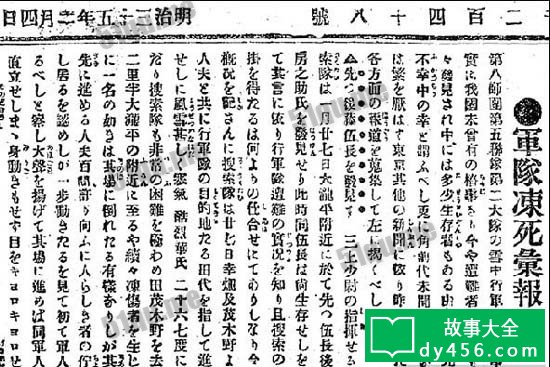 二百四十八號
明治三十五年二月四日
軍隊凍死彙報
第八師團第五聯隊第二大隊の雪中行軍
實に我國未曾有の椿事にして今や遭難者
々發見され中には多少生存者もある由
不幸中の幸と謂ふべし更に角前代未聞
は繁を厭はず東京其他の新聞に依り昨
各方面の報道を蒐集して左に揭ぐべし
先づ後藤伍長を發見す 三上少尉の指揮せる
索隊は一月廿七日大瀧平附近に於て先づ伍長後
房之助氏を發見せり此時同伍長は尙生存せしを
て其言に依り行軍隊遭難の實況を知り且搜索の
掛を得たるは何よりの仕合せにてありしなり今
概況を記さんに搜索隊は廿七日幸畑及茂木野よ
人夫と共に行軍隊の目的地たる田代を指して進
せしに風雪甚しく寒氣 華氏 二十六七度に
だり搜索隊も非常の困難を極めつ田茂木野を去
二里半大瀧平の附近に至るや續々凍傷者を生じ
に一名の如きは其場に倒れたる有樣なりしが其
先に進める人夫百間許り向ふに人らしき者の佇
し居るを認めしが一步動きたるを見て初て軍人
るべしと察し大聲を揚げて其場に進めば同軍人
直立せしまゝ身動きもせず目をキョロキョロせ
51gulife
故事大全
dy456.com